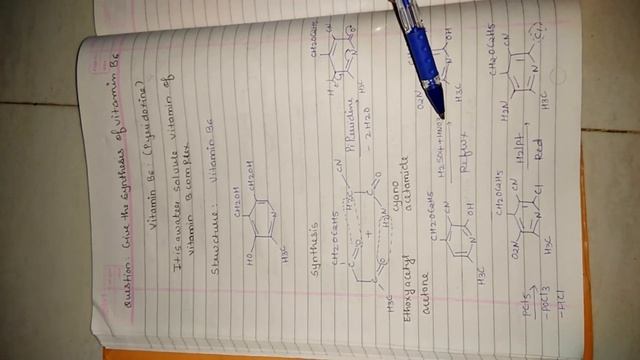 Question: Give the synthesis of vitamin B6
Vitamin B6: (Pyridoxine)
It is a water soluble vitamin of
vitamin B complex
Structure: Vitamin B6
CH2OH
HO
CH2OH
H3C
N
Synthesis
CH2OC2H5
CN
H2C
+
H2N
H3C
Ethoxyacetyl
acetone
cyano
acetamide
Piperidine
- 2H2O
CH2OC2H5
CN
H3C
CH2OC2H5
CN
OH
H3C
N
H2SO4+HNO3
O2N
OH
H3C
PCl5
-POCl3
-HCl
CH2OC2H5
O2N
CN
Cl
H3C
N
H2/Pt
Red
CH2OC2H5
H2N
CN
Cl
H3C
N